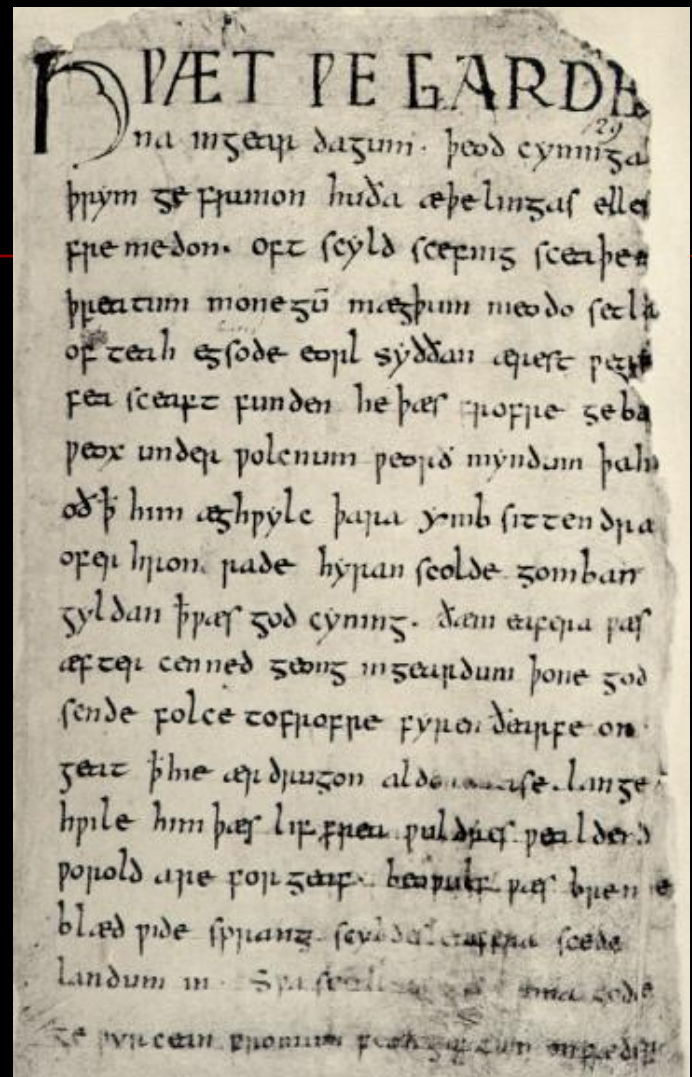 HǷÆT ǷE GARDE
129
na ingear dagum. þeod cyninga
þrym ge frunon huða æþelingas elle
fre medon. oft scyld scefing sceaþen
þreatum monegū mægþum meodo setla
of teah egsode eorl syððan ærest ƿear
fea sceaft funden he þæs frofre geba
ƿeox under ƿolcnum ƿeorð myndum þah
oð ꝥ him æghƿylc þara ymb sittendra
ofer hron rade hyran scolde gomban
gyldan ꝥ ƿæs god cyning. ðæm eafera ƿæs
æfter cenned geong ingeardum þone god
sende folce tofrofre fyren ðearfe on
geat ꝥ hie ær drugon lange
hƿile him þæs lif frea ƿuldres ƿealdend
ƿorold are for geaf. beoƿulf ƿæs breme
blæd ƿide sprang scyldes eafera scede
landum in. Sƿa gode
ge ƿyrcean fromum feoh giftum